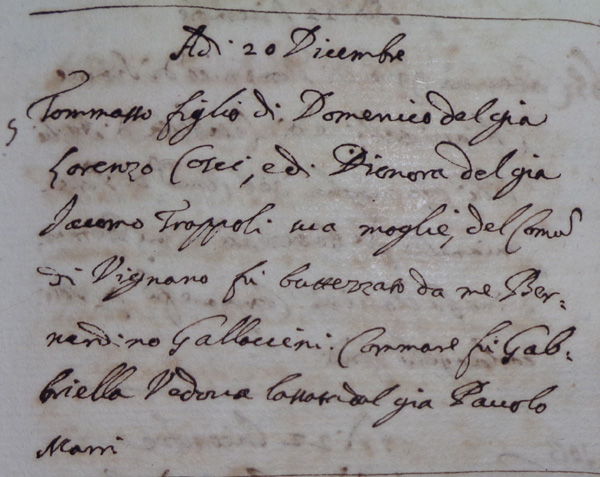 Adi 20 Dicembre
Tommasso figlio di Domenico del gia
Lorenzo Cosci, e di Dionora del gia
Jacomo Troppoli sua moglie, del Comū
di Vignano fu battezzato da me Ber-
nardino Gallaccini. Commare fu Gab-
briella Vedova del gia Pavolo
Marri